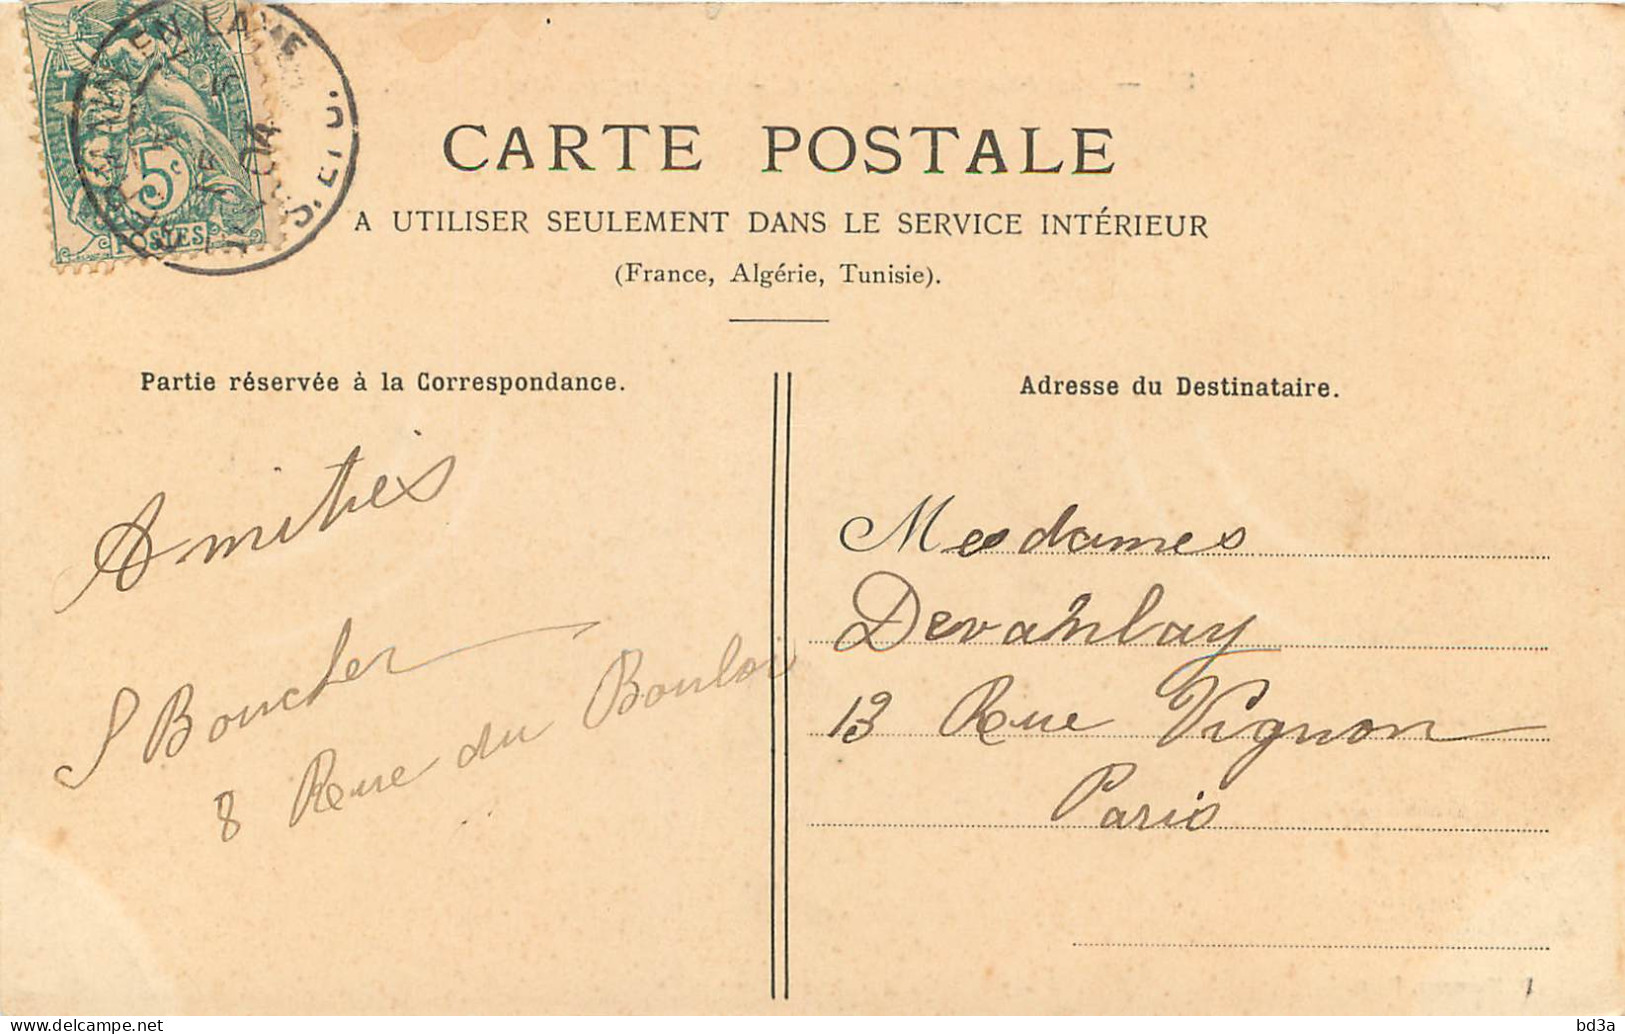 EN LAYE
04
5c
POSTES
CARTE POSTALE
A UTILISER SEULEMENT DANS LE SERVICE INTÉRIEUR
(France, Algérie, Tunisie).
Partie réservée à la Correspondance.
Adresse du Destinataire.
Amitiés
S Boucher
8 Rue du Bouloi
Mesdames
Devahlay
13 Rue Vignon
Paris
bd3a